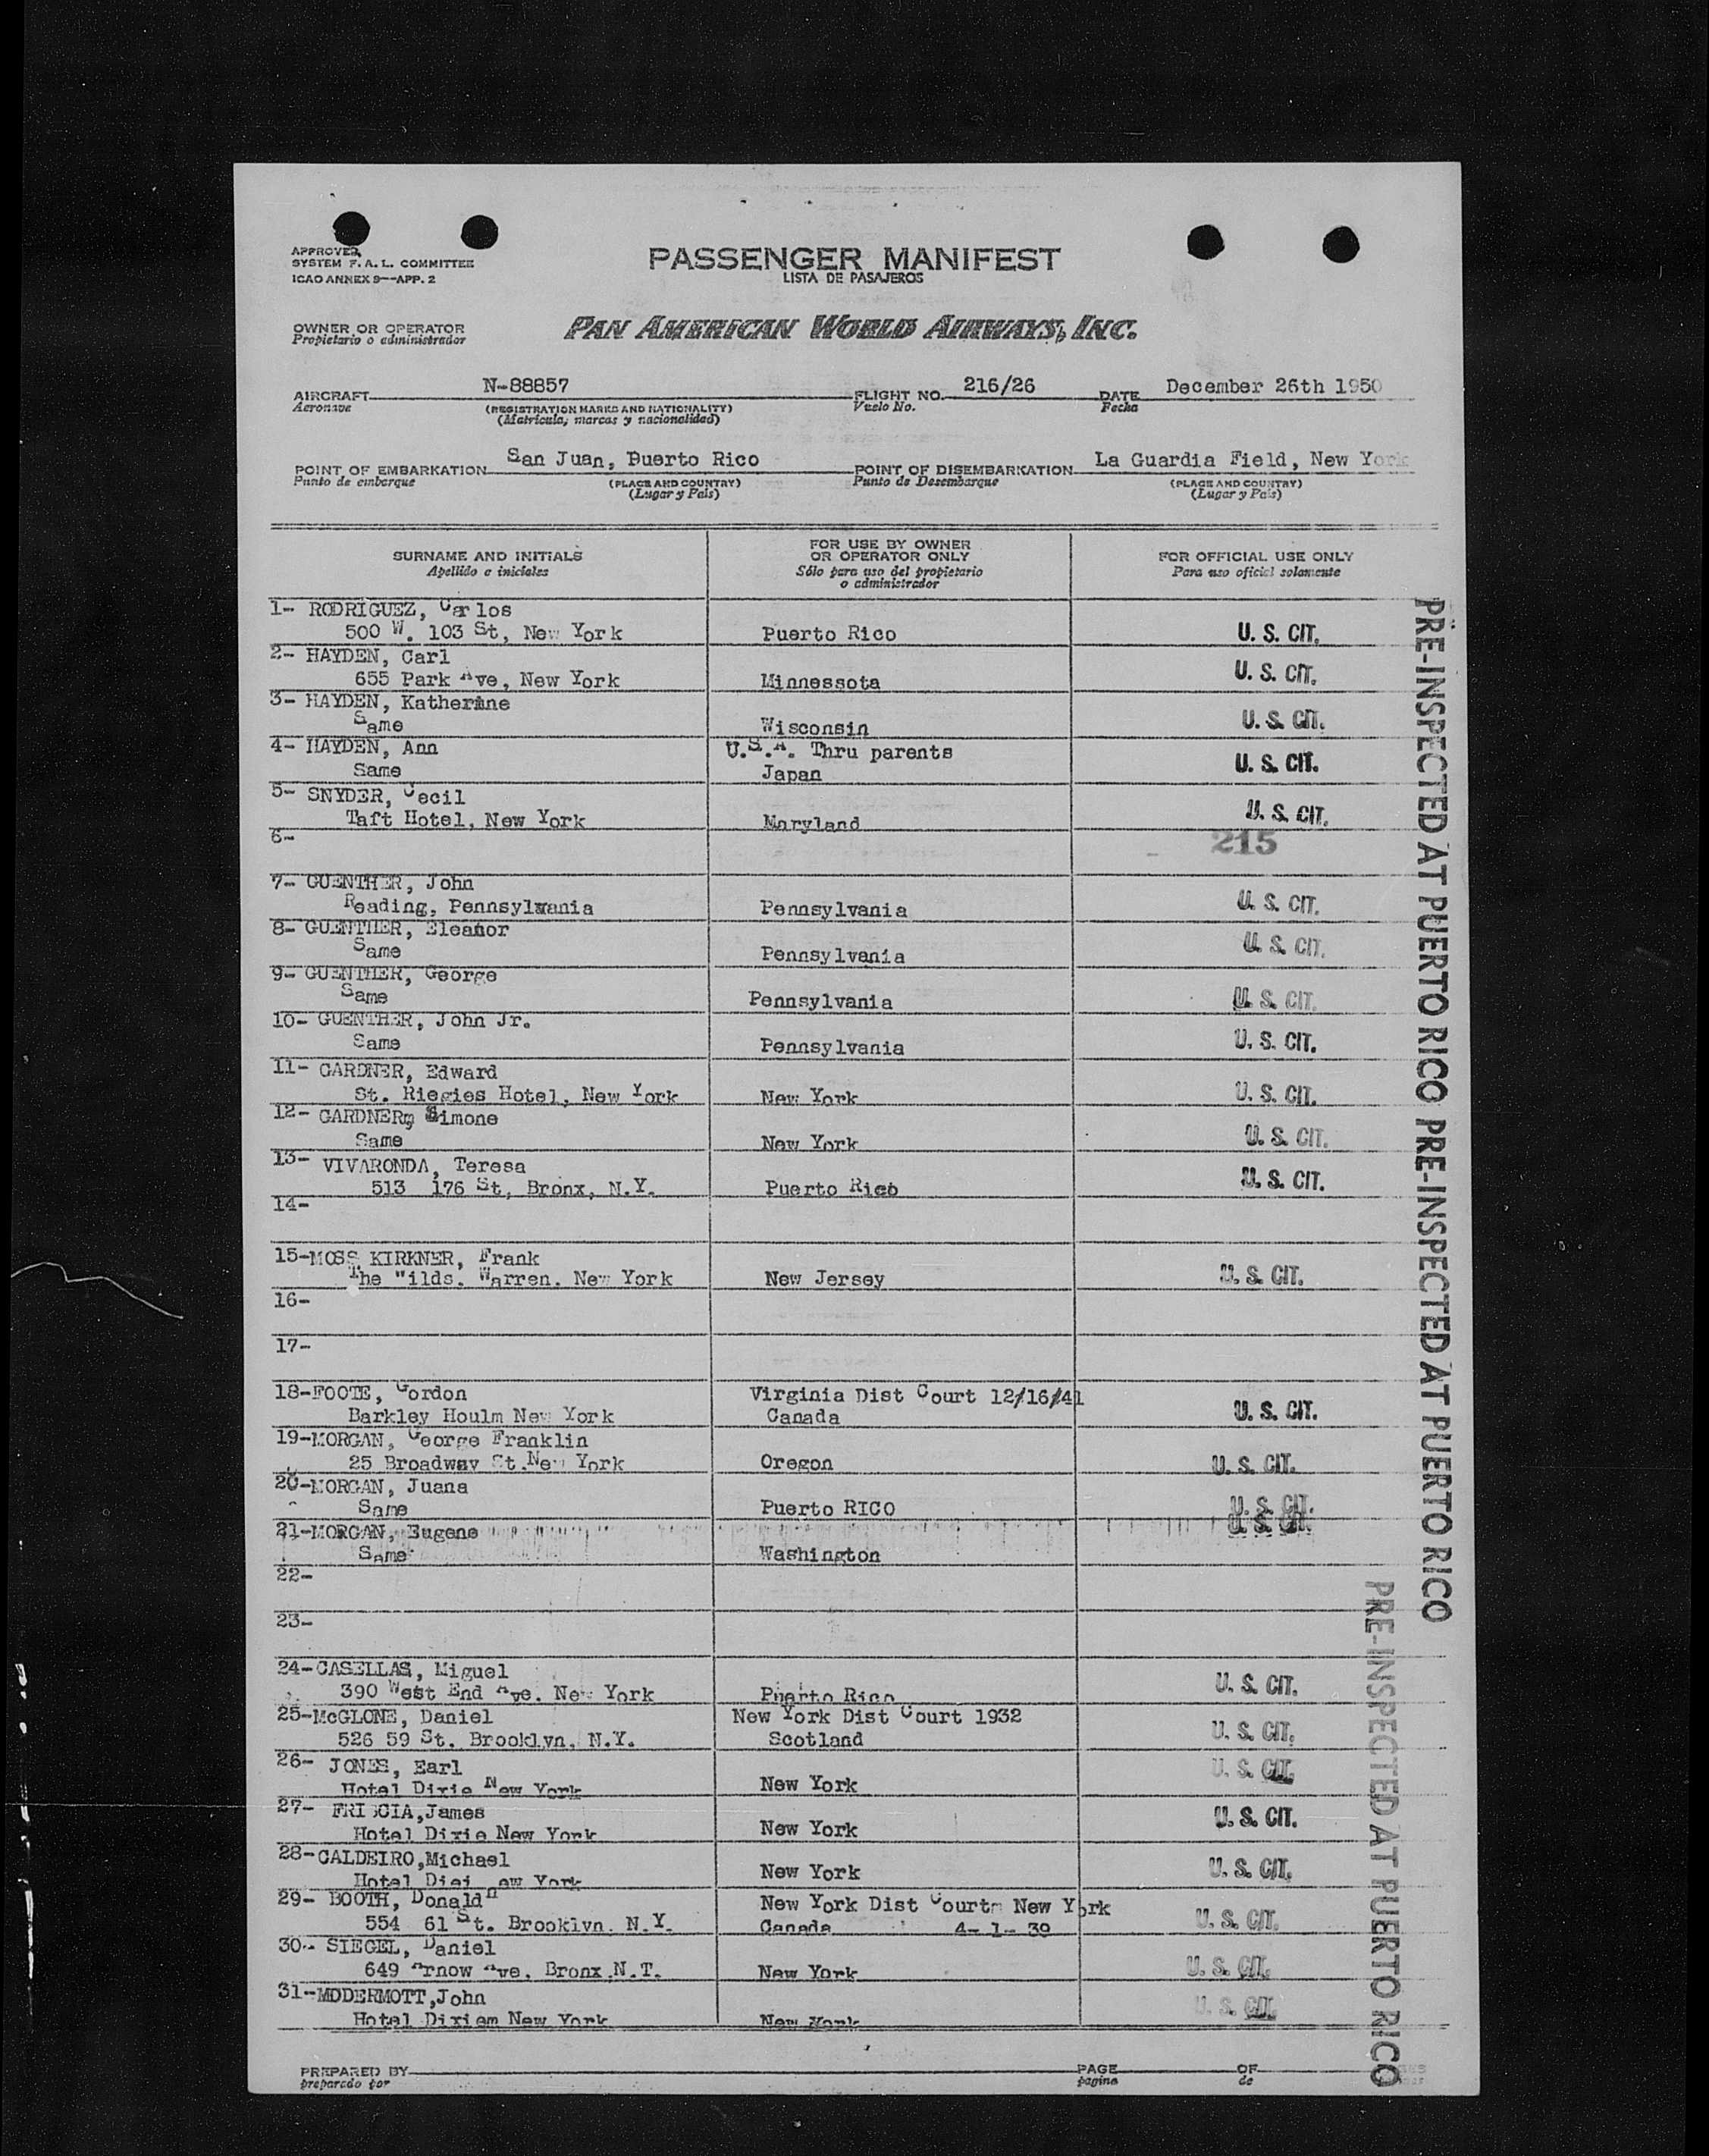 APPROVED
SYSTEM F. A. L. COMMITTEE
ICAO ANNEX 9--APP. 2
PASSENGER MANIFEST
LISTA DE PASAJEROS
OWNER OR OPERATOR
Propietario o administrador
PAN AMERICAN WORLD AIRWAYS, INC.
AIRCRAFT N-88857 FLIGHT NO. 216/26 DATE December 26th 1950
Aeronave (REGISTRATION MARKS AND NATIONALITY) Vuelo No. Fecha
(Matricula, marcas y nacionalidad)
POINT OF EMBARKATION San Juan, Puerto Rico POINT OF DISEMBARKATION La Guardia Field, New York
Punto de embarque (PLACE AND COUNTRY) Punto de Desembarque (PLACE AND COUNTRY)
(Lugar y País) (Lugar y País)
SURNAME AND INITIALS
Apellido e iniciales
FOR USE BY OWNER
OR OPERATOR ONLY
Sólo para uso del propietario
o administrador
FOR OFFICIAL USE ONLY
Para uso oficial solamente
1- RODRIGUEZ, Carlos
500 W. 103 St, New York Puerto Rico U. S. CIT.
2- HAYDEN, Carl
655 Park Ave, New York Minnessota U. S. CIT.
3- HAYDEN, Katherine
Same Wisconsin U. S. CIT.
4- HAYDEN, Ann U.S.A. Thru parents
Same Japan U. S. CIT.
5- SNYDER, Cecil
Taft Hotel, New York Maryland U. S. CIT.
6- 215
7- GUENTHER, John
Reading, Pennsylvania Pennsylvania U. S. CIT.
8- GUENTHER, Eleanor
Same Pennsylvania U. S. CIT.
9- GUENTHER, George
Same Pennsylvania U. S. CIT.
10- GUENTHER, John Jr.
Same Pennsylvania U. S. CIT.
11- GARDNER, Edward
St. Riegies Hotel, New York New York U. S. CIT.
12- GARDNER, Simone
Same New York U. S. CIT.
13- VIVARONDA, Teresa
513 176 St, Bronx, N.Y. Puerto Rico U. S. CIT.
14-
15-MOSS KIRKNER, Frank
The Wilds. Warren. New York New Jersey U. S. CIT.
16-
17-
18-FOOTE, Gordon Virginia Dist Court 12/16/41
Barkley Houlm New York Canada U. S. CIT.
19-MORGAN, George Franklin
25 Broadway St.New York Oregon U. S. CIT.
20-MORGAN, Juana
Same Puerto RICO U. S. CIT.
21-MORGAN, Eugene U. S. CIT.
Same Washington
22-
23-
24-CASELLAS, Miguel
390 West End Ave. New York Puerto Rico U. S. CIT.
25-McGLONE, Daniel New York Dist Court 1932
526 59 St. Brooklyn, N.Y. Scotland U. S. CIT.
26- JONES, Earl
Hotel Dixie New York New York U. S. CIT.
27- FRISCIA,James
Hotel Dixie New York New York U. S. CIT.
28-CALDEIRO,Michael
Hotel Diei New York New York U. S. CIT.
29- BOOTH, Donald New York Dist Court- New York
554 61 St. Brooklyn. N.Y. Canada 4-1-39 U. S. CIT.
30- SIEGEL, Daniel
649 Arnow Ave. Bronx.N.T. New York U. S. CIT.
31-MDDERMOTT,John
Hotel Dixiem New York New York U. S. CIT.
PREPARED BY PAGE OF
preparado por pagina de
PRE-INSPECTED AT PUERTO RICO PRE-INSPECTED AT PUERTO RICO
PRE-INSPECTED AT PUERTO RICO